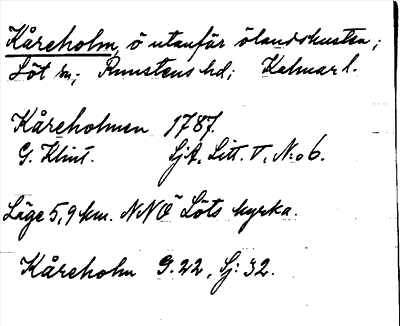 Kåreholm, ö utanför ölandskusten;
Löt sn; Runstens hd; Kalmar l.
Kåreholmen 1787.
G. Klint. SjA. Litt. V, N:o 6.
Läge 5,9 km. NNÖ Löts kyrka.
Kåreholm G. 22, Sj: 32.